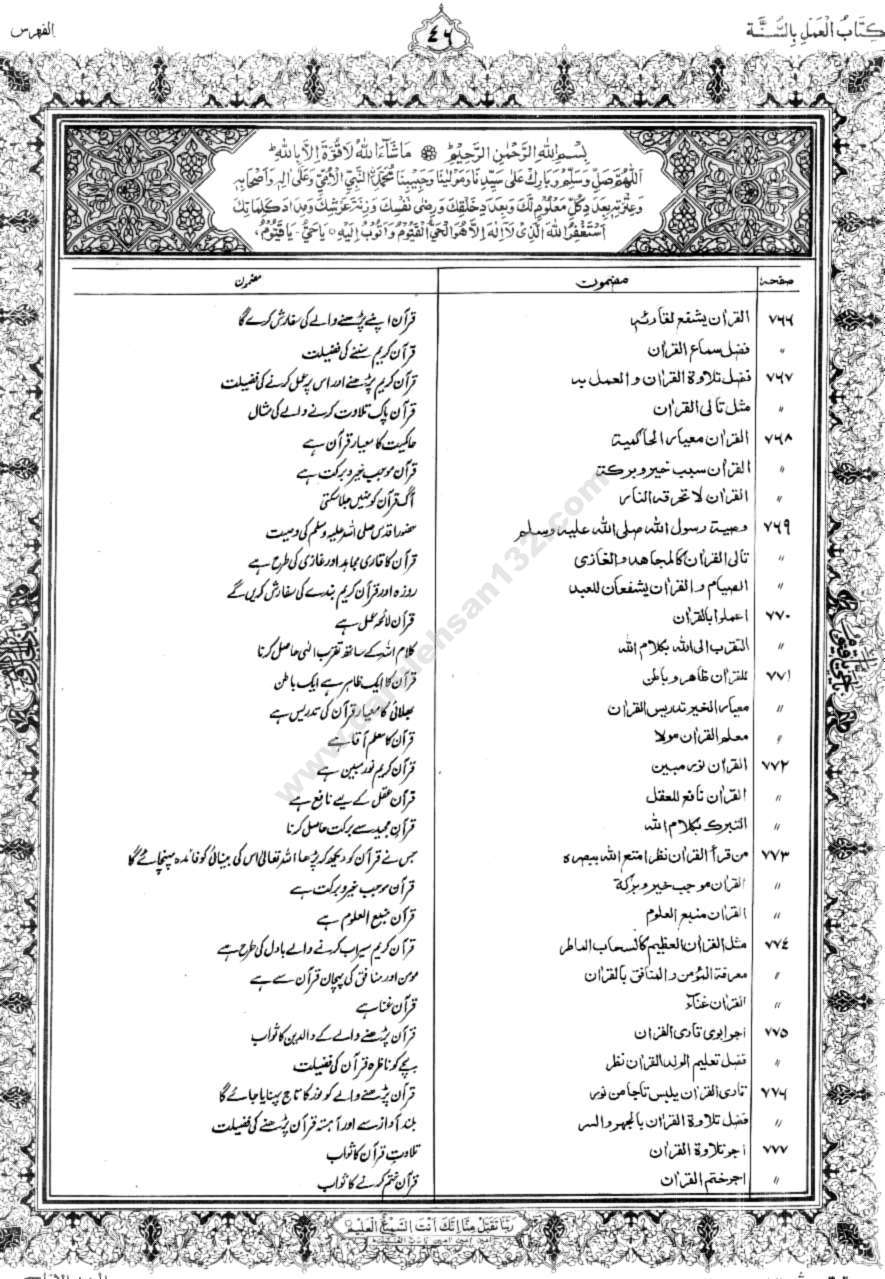 كِتَابُ الْعَمَلِ بِالسُّنَّة
٤٦
الفهرس
بِسْمِ اللهِ الرَّحْمٰنِ الرَّحِيْمِ مَاشَآءَ اللهُ لَا قُوَّةَ اِلَّا بِاللهِ
اَللّٰهُمَّ صَلِّ وَسَلِّمْ وَبَارِكْ عَلٰى سَيِّدِنَا وَمَوْلٰينَا وَحَبِيْبِنَا مُحَمَّدِ ۣالنَّبِيِّ الْاُمِّيِّ وَعَلٰى اٰلِهٖ وَاَصْحَابِهٖ
وَعِتْرَتِهٖ بِعَدَدِ كُلِّ مَعْلُوْمٍ لَّكَ وَبِعَدَدِ خَلْقِكَ وَرِضٰى نَفْسِكَ وَزِنَةَ عَرْشِكَ وَمِدَادَ كَلِمَاتِكَ
اَسْتَغْفِرُ اللهَ الَّذِيْ لَا اِلٰهَ اِلَّا هُوَ الْحَيُّ الْقَيُّوْمُ وَاَتُوْبُ اِلَيْهِ يَاحَيُّ يَاقَيُّوْمُ
صفحہ مضمون مضمون
٧٦٦ القرآن يشفع لقارئها قرآن اپنے پڑھنے والے کی سفارش کرے گا
〃 فضل سماع القرآن قرآن کریم سننے کی فضیلت
٧٦٧ فضل تلاوة القرآن و العمل به قرآن کریم پڑھنے اور اس پر عمل کرنے کی فضیلت
〃 مثل تالى القرآن قرآن پاک تلاوت کرنے والے کی مثال
٧٦٨ القرآن معيار الحاكمية حاکمیت کا معیار قرآن ہے
〃 القرآن سبب خير و بركة قرآن موجب خیر و برکت ہے
〃 القرآن لا تحرقه النار آگ قرآن کو نہیں جلا سکتی
٧٦٩ وصية رسول الله صلى الله عليه وسلم حضور اقدس صلی اللہ علیہ وسلم کی وصیت
〃 تالى القرآن كالمجاهد و الغازى قرآن کا قاری مجاہد اور غازی کی طرح ہے
〃 الصيام و القرآن يشفعان للعبد روزہ اور قرآن کریم بندے کی سفارش کریں گے
٧٧٠ اعملوا بالقرآن قرآن لائحہ عمل ہے
〃 التقرب الى الله بكلام الله کلام اللہ کے ساتھ تقرب الٰہی حاصل کرنا
٧٧١ للقرآن ظاهر و باطن قرآن کا ایک ظاہر ہے ایک باطن
〃 معيار الخير تدريس القرآن بھلائی کا معیار قرآن کی تدریس ہے
〃 معلم القرآن مولا قرآن کا معلم آقا ہے
٧٧٢ القرآن نور مبين قرآن کریم نور مبین ہے
〃 القرآن نافع للعقل قرآن عقل کے لیے نافع ہے
〃 التبرك بكلام الله قرآن مجید سے برکت حاصل کرنا
٧٧٣ من قرأ القرآن نظرا متع الله ببصره جس نے قرآن کو دیکھ کر پڑھا اللہ تعالیٰ اس کی بینائی کو فائدہ پہنچائے گا
〃 القرآن موجب خير و بركة قرآن موجب خیر و برکت ہے
〃 القرآن منبع العلوم قرآن منبع العلوم ہے
٧٧٤ مثل القرآن العظيم كالسحاب الماطر قرآن کریم سیراب کرنے والے بادل کی طرح ہے
〃 معرفة المؤمن و المنافق بالقرآن مومن اور منافق کی پہچان قرآن سے ہے
〃 القرآن غناء قرآن غنا ہے
٧٧٥ اجر ابوى قارى القرآن قرآن پڑھنے والے کے والدین کا ثواب
〃 فضل تعليم الولد القرآن نظر بچے کو ناظرہ قرآن کی فضیلت
٧٧٦ قارى القرآن يلبس تاجا من نور قرآن پڑھنے والے کو نور کا تاج پہنایا جائے گا
〃 فضل تلاوة القرآن بالجهر والسر بلند آواز سے اور آہستہ قرآن پڑھنے کی فضیلت
٧٧٧ اجر تلاوة القرآن تلاوتِ قرآن کا ثواب
〃 اجر ختم القرآن قرآن ختم کرنے کا ثواب
رَبَّنَا تَقَبَّلْ مِنَّا اِنَّكَ اَنْتَ السَّمِيْعُ الْعَلِيْمُ